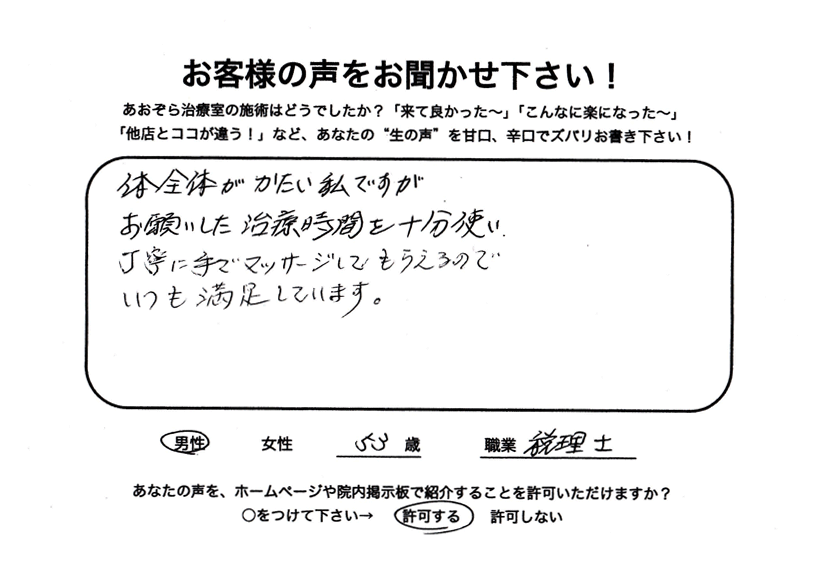 お客様の声をお聞かせ下さい！
あおぞら治療室の施術はどうでしたか？「来て良かった〜」「こんなに楽になった〜」
「他店とココが違う！」など、あなたの“生の声”を甘口、辛口でズバリお書き下さい！
体全体がかたい私ですが
お願いした治療時間を十分使い、
丁寧に手でマッサージしてもらえるので
いつも満足しています。
男性 女性 53 歳 職業 税理士
あなたの声を、ホームページや院内掲示板で紹介することを許可いただけますか？
〇をつけて下さい→ 許可する 許可しない